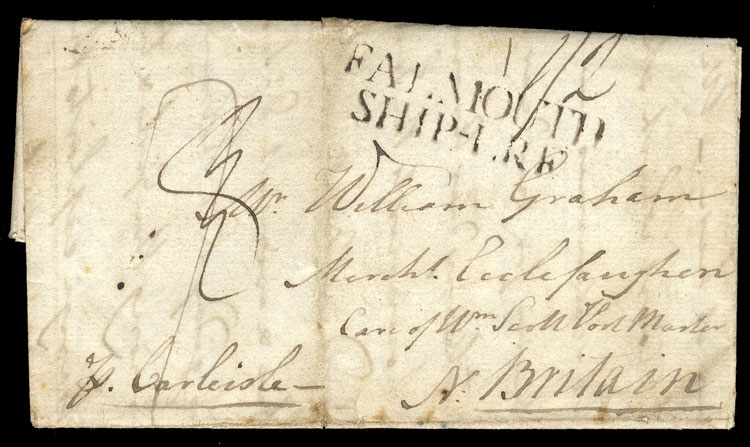 1/2
FALMOUTH
SHIP-LRE
Mr. William Graham
Mercht. Ecclefaughen
Care of Wm Scott Post Master
p. Carleisle —
N. Britain